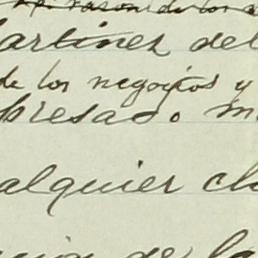 razon de los
artinez del
de los negocios y
presado. m
alquier cl
cion de la